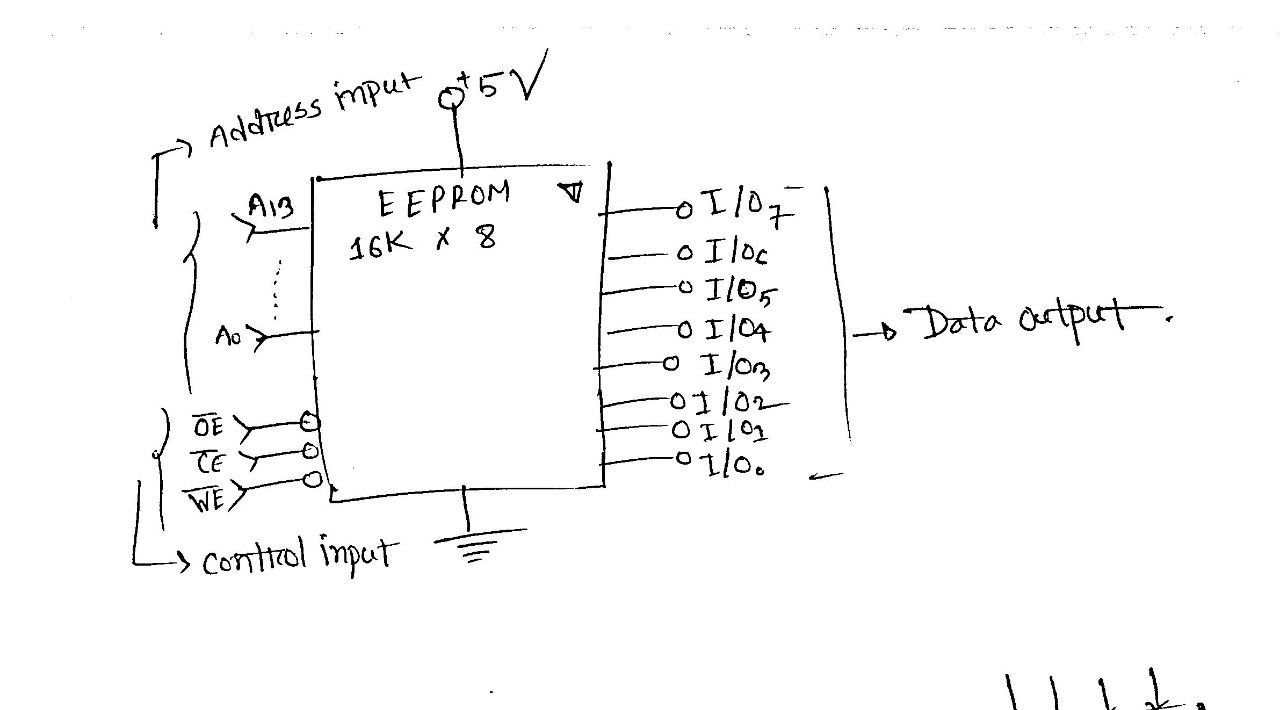 Address input
+5V
A13
EEPROM
16K x 8
A0
O̅E̅
C̅E̅
W̅E̅
control input
I/O7
I/O6
I/O5
I/O4
I/O3
I/O2
I/O1
I/O0
Data output.